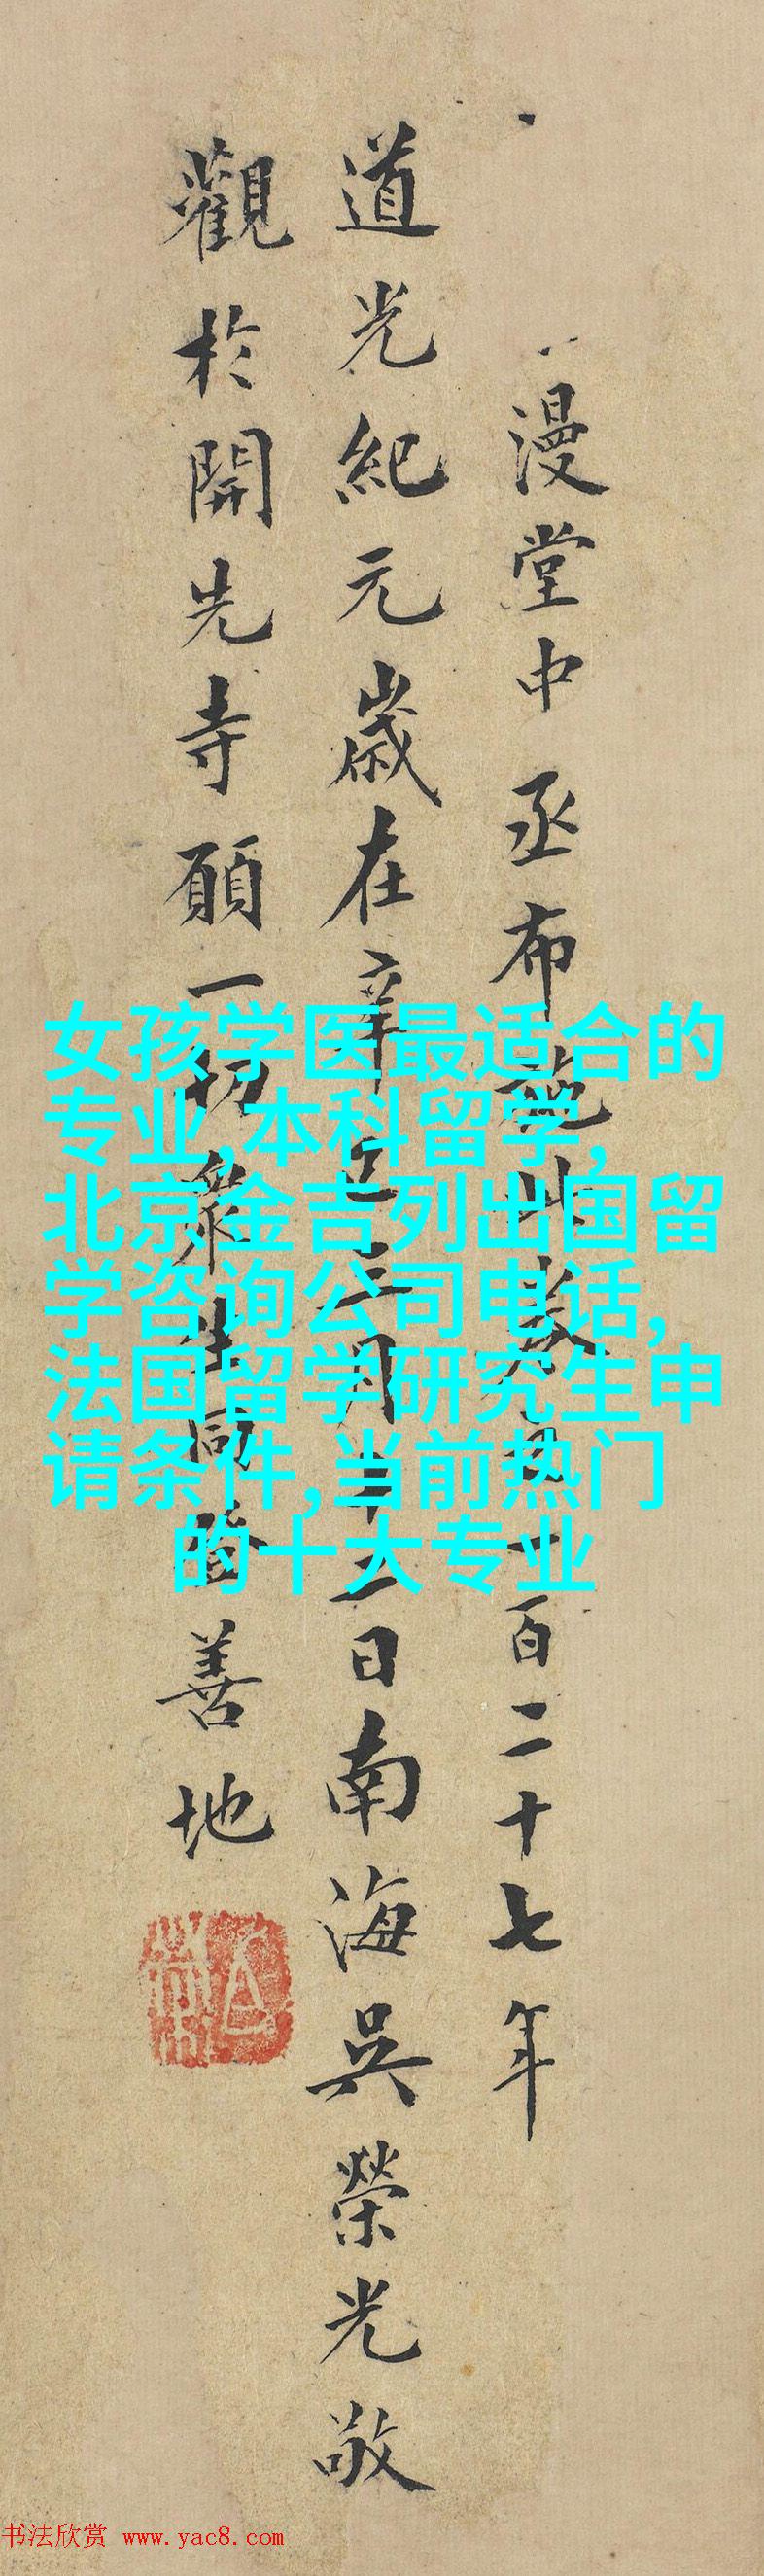 漫堂中丞布施此卷一百二十七年
道光紀元歲在辛巳三月二日南海吳榮光敬
觀於開先寺願一切衆生同登善地
女孩学医最适合的
专业,本科留学,
北京金吉列出国留
学咨询公司电话,
法国留学研究生申
请条件,当前热门
的十大专业
书法欣赏 www.yac8.com